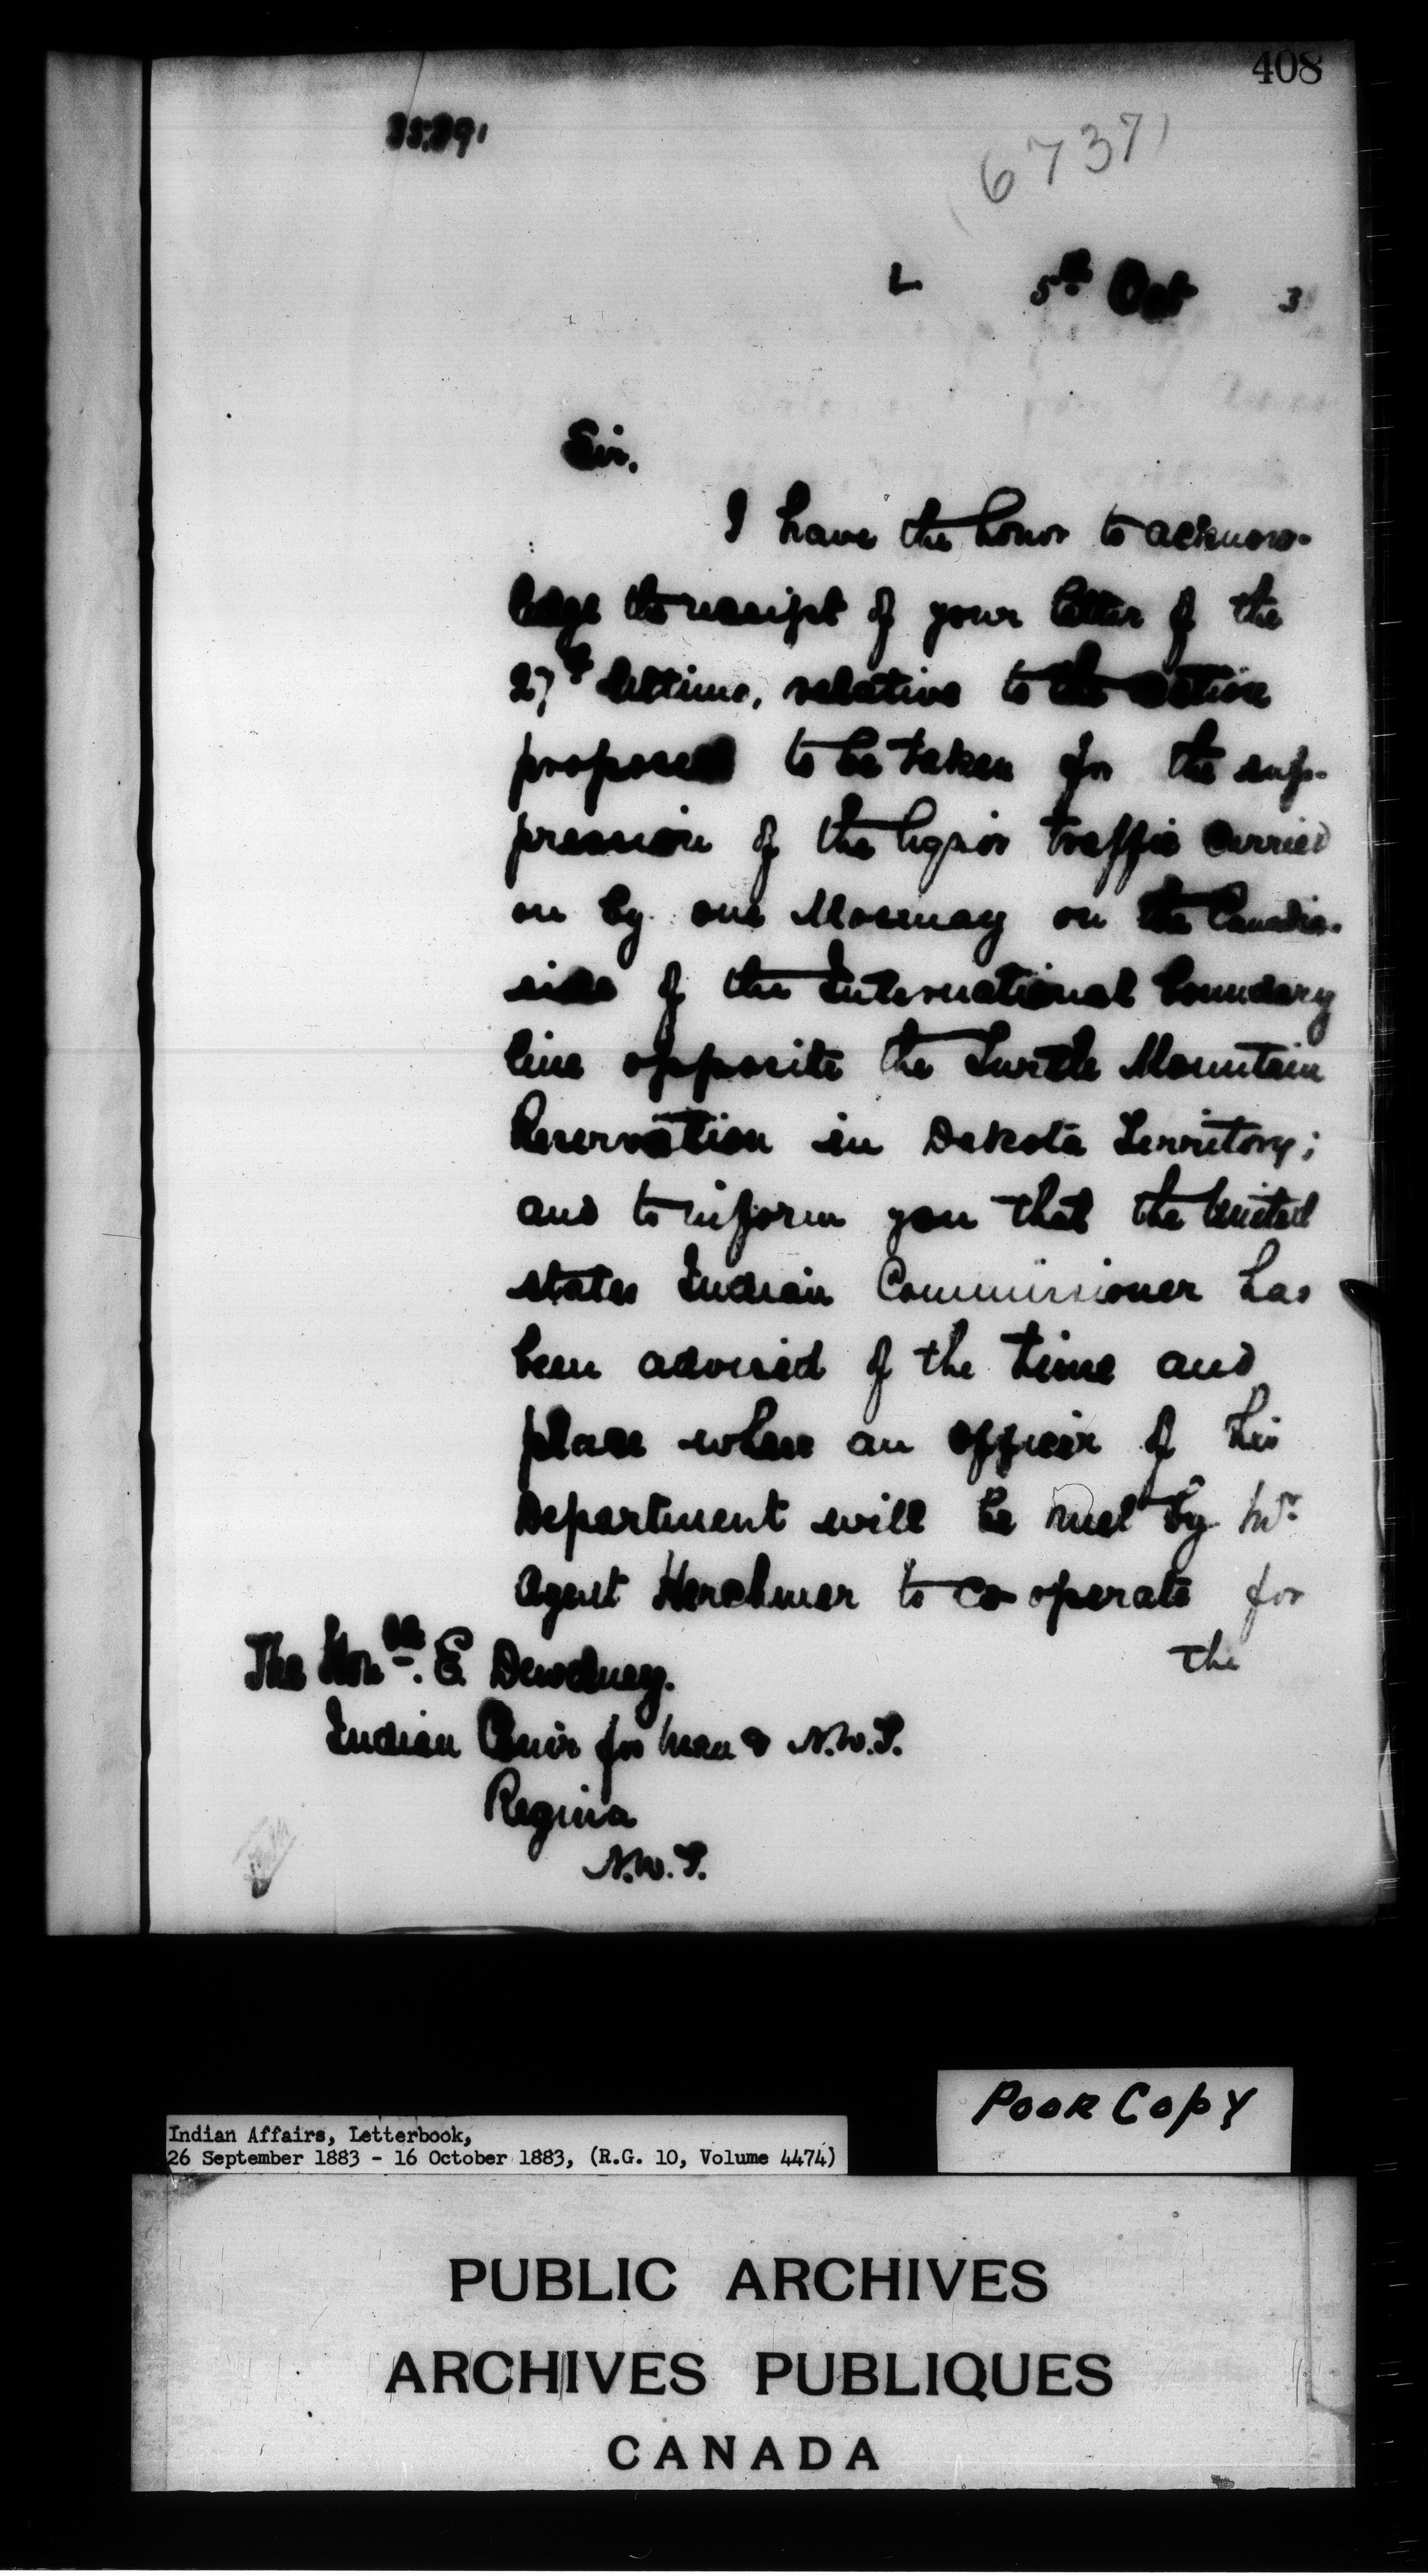 408
6737
L 5th Oct 3
Sir,
I have the honor to acknow-
ledge the receipt of your letter of the
27th Ultimo, relative to the action
proposed to be taken for the sup-
pression of the liquor traffic carried
on by one on the Canadian
side of the International boundary
line opposite the Turtle Mountain
Reservation in Dakota Territory;
and to inform you that the United
States Indian Commissioner has
been advised of the time and
place where an officer of his
Department will be met by Mr
Agent Herchmer to co operate for
the
The Honble. E. Dewdney.
Indian Comr for Man & N.W.T.
Regina
N.W.T.
Poor Copy
Indian Affairs, Letterbook,
26 September 1883 - 16 October 1883, (R.G. 10, Volume 4474)
PUBLIC ARCHIVES
ARCHIVES PUBLIQUES
CANADA